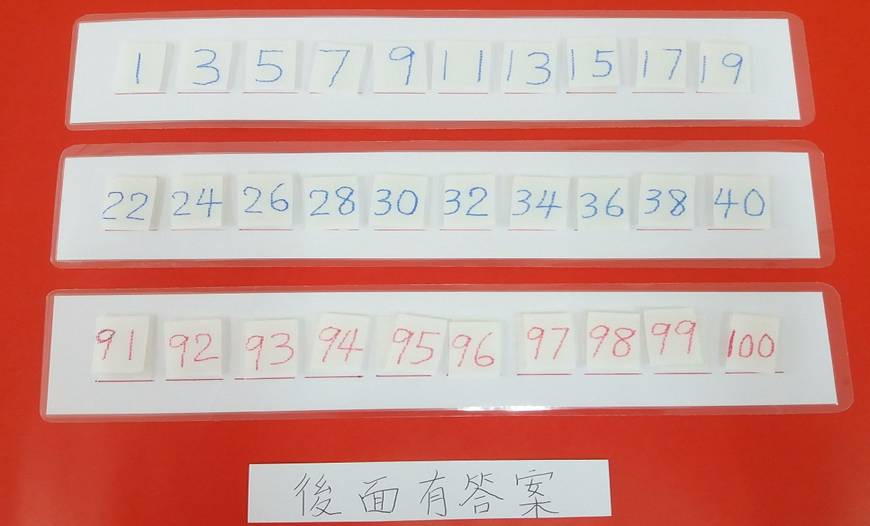 1 3 5 7 9 11 13 15 17 19
22 24 26 28 30 32 34 36 38 40
91 92 93 94 95 96 97 98 99 100
後面有答案